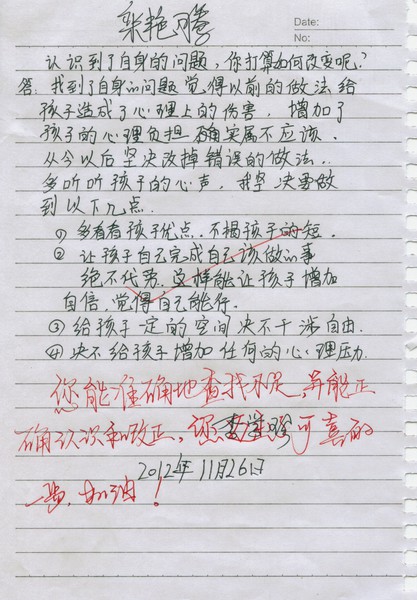 张艳腾
Date:
No:
认识到了自身的问题,你打算如何改变呢?
答:我到了自身的问题觉得以前的做法给
孩子造成了心理上的伤害,增加了
孩子的心理负担确实属不应该.
从今以后坚决改掉错误的做法.
多听听孩子的心声,我坚决要做
到以下几点.
① 多看看孩子优点.不揭孩子的短.
② 让孩子自己完成自己该做的事
绝不代劳.这样能让孩子增加
自信.觉得自己能行.
③ 给孩子一定的空间决不干涉自由.
④ 决不给孩子增加任何的心理压力.
您能准确地查找不足,并能正
确认识和改正,您 可喜的
2012年11月26日
一步,加油!